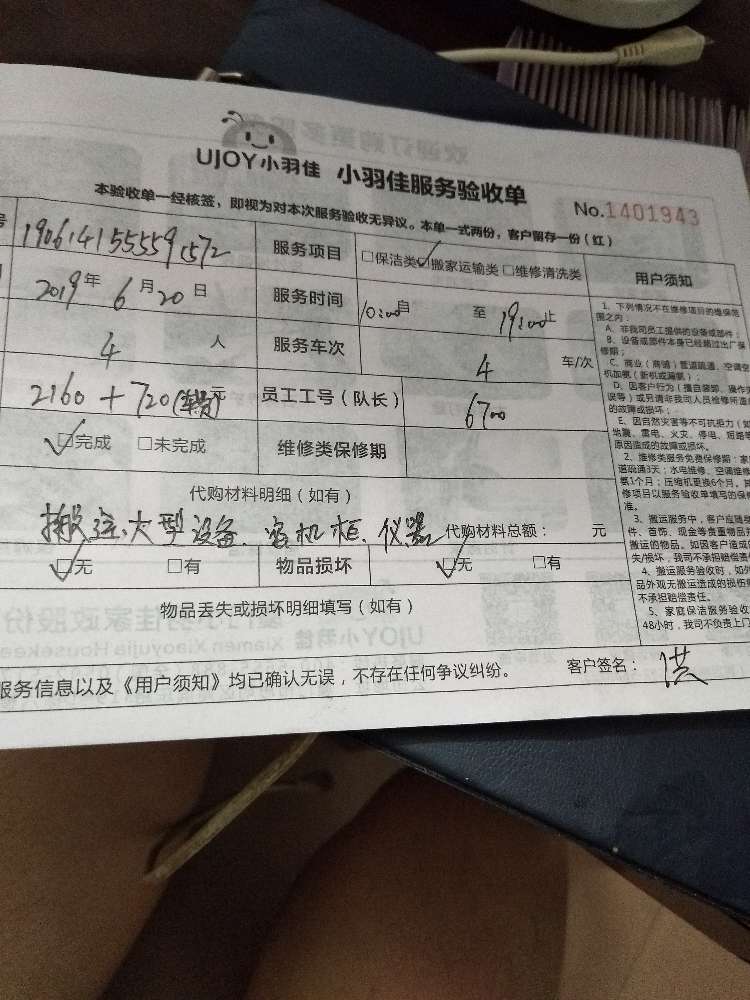 UJOY小羽佳 小羽佳服务验收单
No.1401943
本验收单一经核签，即视为对本次服务验收无异议。本单一式两份，客户留存一份（红）
号 服务项目 □保洁类 ☑搬家运输类 □维修清洗类 用户须知
2019年6月20日 服务时间 10:00自 至 19:00止
4 人 服务车次 4 车/次
2160+720(车费)元 员工工号（队长） 6700
☑完成 □未完成 维修类保修期
代购材料明细（如有）
搬运大型设备、 机柜、仪器 代购材料总额： 元
☑无 □有 物品损坏 ☑无 □有
物品丢失或损坏明细填写（如有）
服务信息以及《用户须知》均已确认无误，不存在任何争议纠纷。 客户签名：洪
1、下列情况不在维修项目的维保范
围之内：
A、非我司员工提供的设备或部件；
B、设备或部件本身已经超过出厂保
修期；
C、商业（商铺）管道疏通、空调
机加氨（新机或漏氨）；
D、因客户行为（擅自装卸、操作
误等）或另请非我司人员检修所造
的故障或损坏；
E、因自然灾害等不可抗拒力（如
地震、雷电、火灾、停电、短路等
原因造成的故障或损坏。
2、维修类服务免费保修期：家
道疏通3天；水电维修、空调维修
氨1个月；压缩机更换6个月。其
修项目以服务验收单填写的保修
准。
3、搬运服务中，客户应随
件、首饰、现金等贵重物品
搬运的物品。如因客户造成
失/损坏，我司不承担赔偿责
4、搬运服务验收时，如外
品外观无搬运造成的损伤
不承担赔偿责任。
5、家庭保洁服务验收
48小时，我司不负责上门